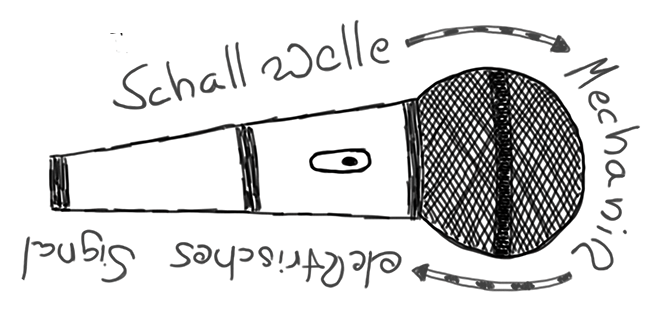 Schallwelle
Mechanik
elektrisches Signal